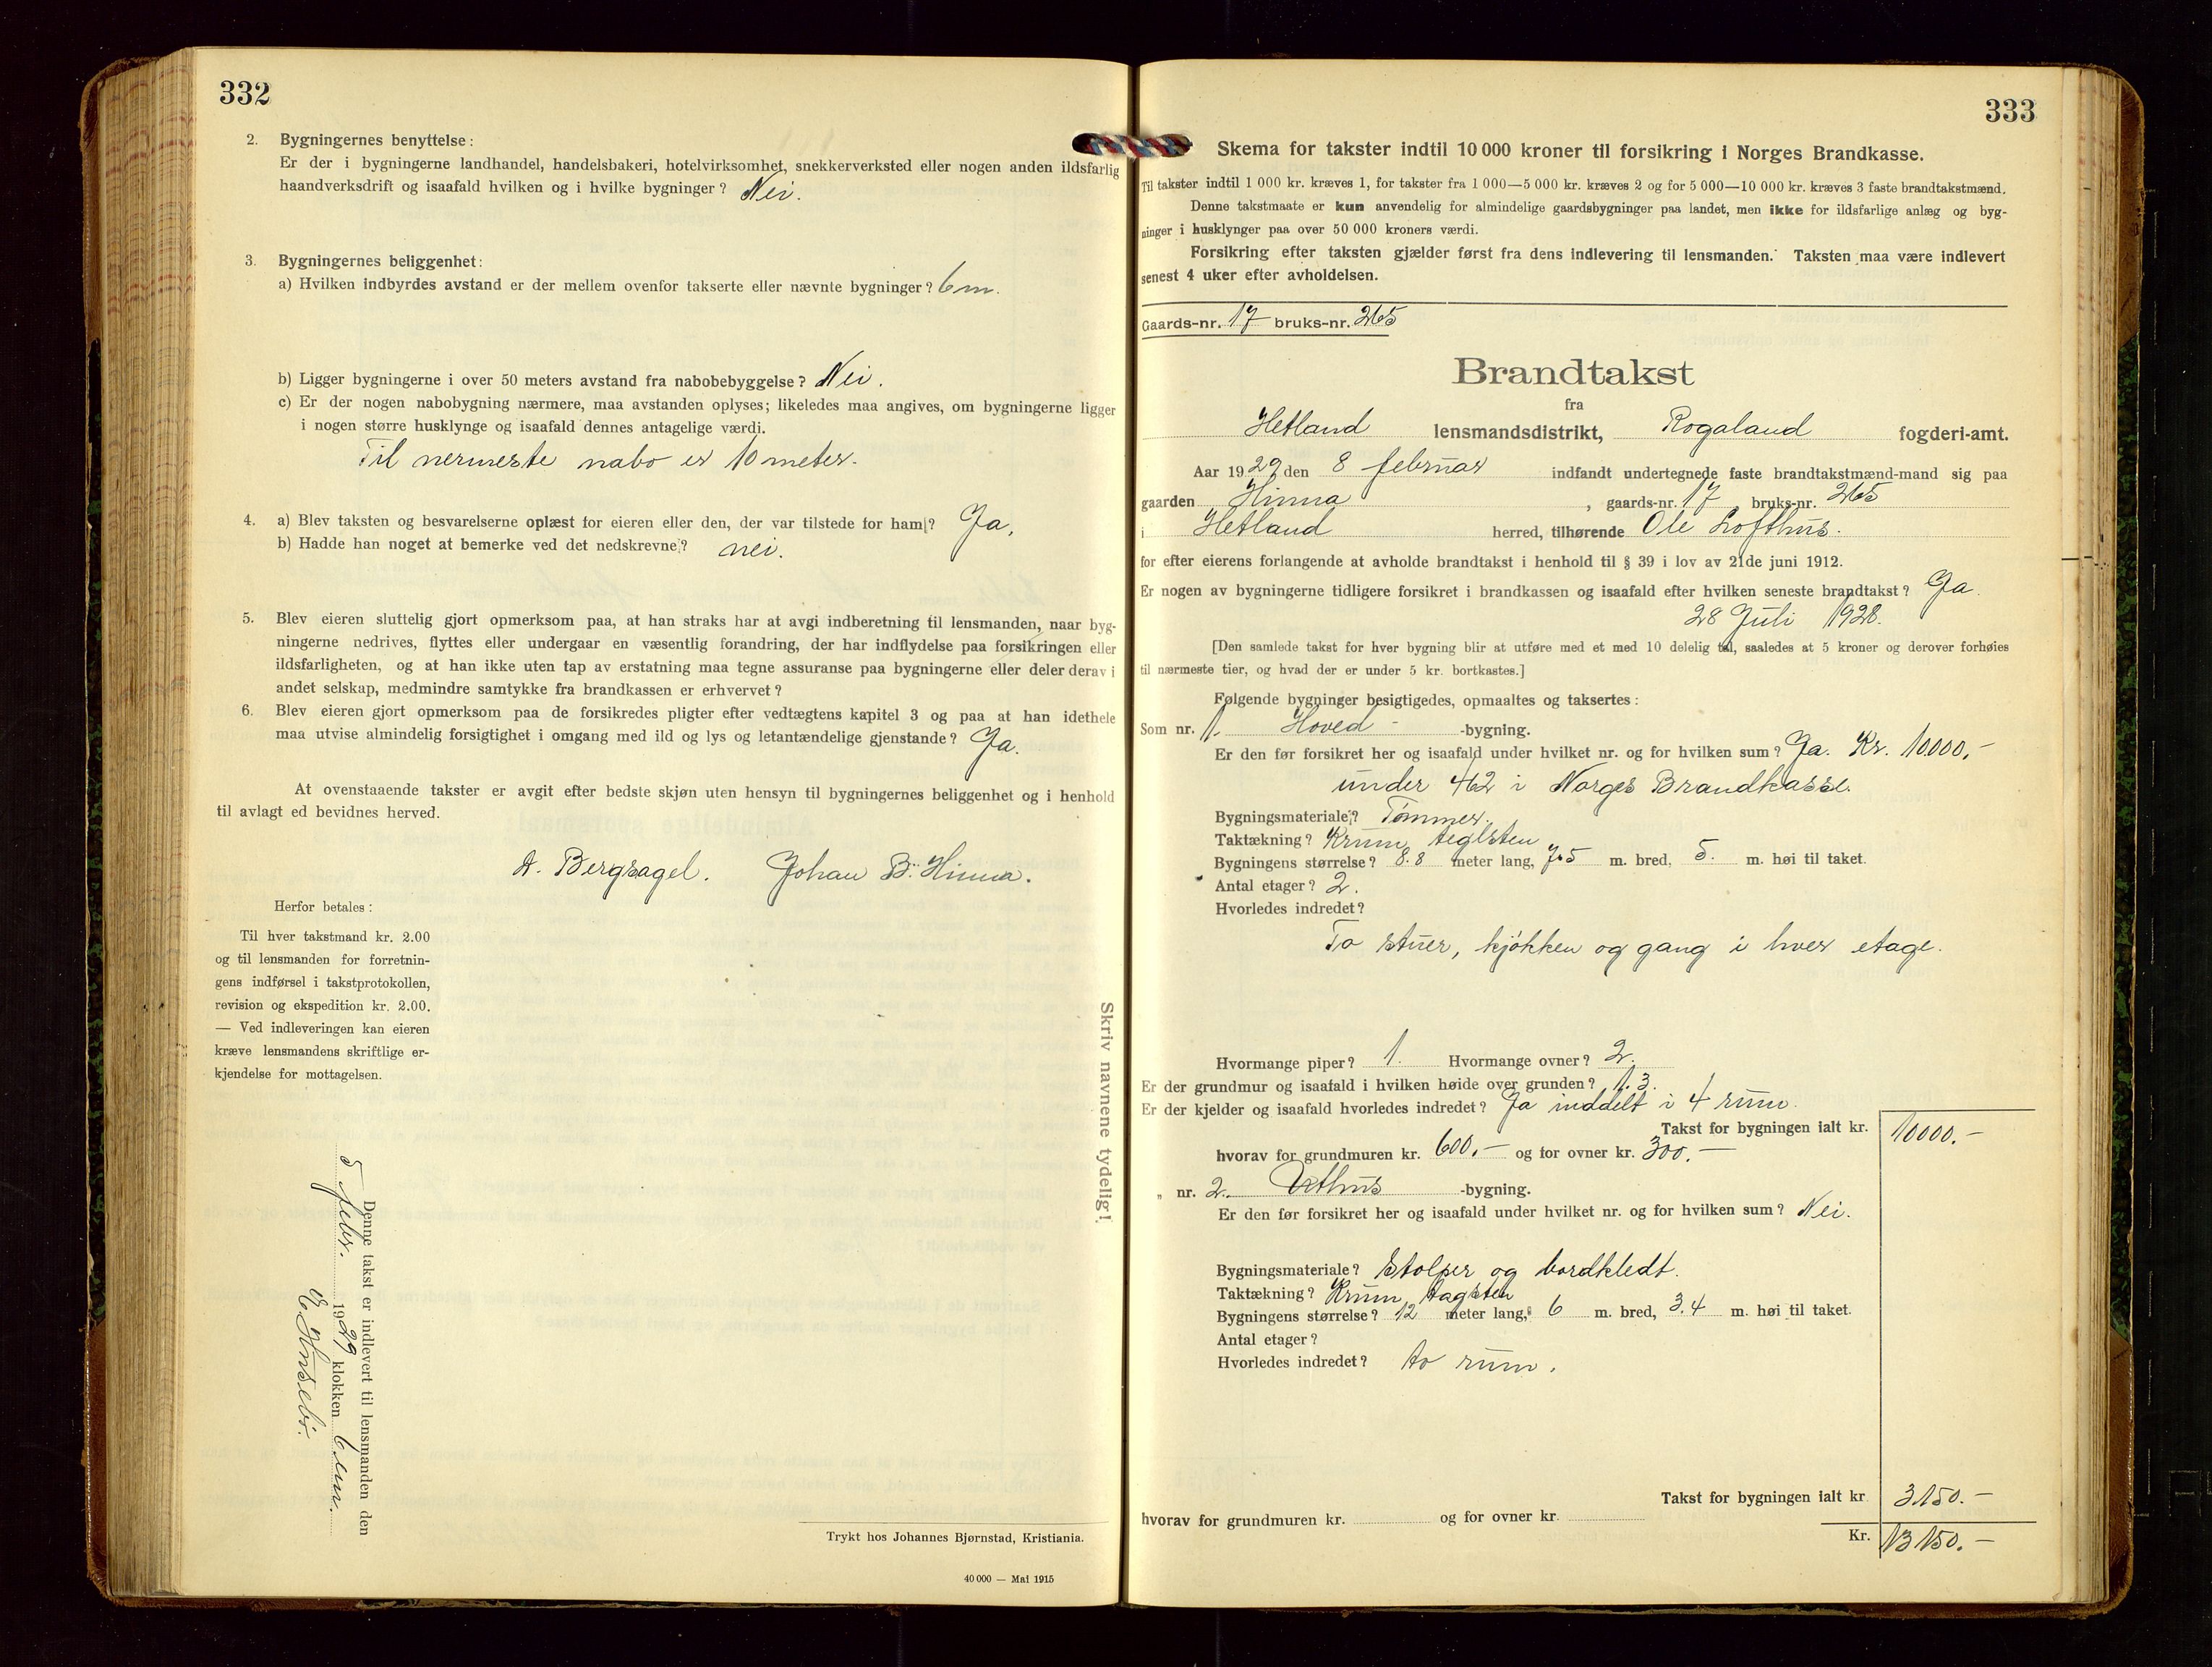 332
2. Bygningernes benyttelse:
Er der i bygningerne landhandel, handelsbakeri, hotelvirksomhet, snekkerverksted eller nogen anden ildsfarlig
haandverksdrift og isaafald hvilken og i hvilke bygninger? Nei.
3. Bygningernes beliggenhet:
a) Hvilken indbyrdes avstand er der mellem ovenfor takserte eller nævnte bygninger? 6 m.
b) Ligger bygningerne i over 50 meters avstand fra nabobebyggelse? Nei.
c) Er der nogen nabobygning nærmere, maa avstanden oplyses; likeledes maa angives, om bygningerne ligger
i nogen større husklynge og isaafald dennes antagelige værdi.
Til nermeste nabo er 10 meter.
4. a) Blev taksten og besvarelserne oplæst for eieren eller den, der var tilstede for ham? Ja,
b) Hadde han noget at bemerke ved det nedskrevne? nei.
5. Blev eieren sluttelig gjort opmerksom paa, at han straks har at avgi indberetning til lensmanden, naar byg-
ningerne nedrives, flyttes eller undergaar en væsentlig forandring, der har indflydelse paa forsikringen eller
ildsfarligheten, og at han ikke uten tap av erstatning maa tegne assuranse paa bygningerne eller deler derav i
andet selskap, medmindre samtykke fra brandkassen er erhvervet?
6. Blev eieren gjort opmerksom paa de forsikredes pligter efter vedtægtens kapitel 3 og paa at han idethele
maa utvise almindelig forsigtighet i omgang med ild og lys og letantændelige gjenstande? Ja.
At ovenstaaende takster er avgit efter bedste skjøn uten hensyn til bygningernes beliggenhet og i henhold
til avlagt ed bevidnes herved.
A. Bergsagel. Johan B. Hinna.
Herfor betales:
Til hver takstmand kr. 2.00
og til lensmanden for forretnin-
gens indførsel i takstprotokollen,
revision og ekspedition kr. 2.00.
— Ved indleveringen kan eieren
kræve lensmandens skriftlige er-
kjendelse for mottagelsen.
Denne takst er indlevert til lensmanden den
5 febr. 1929 klokken 6 em.
Skriv navnene tydelig!
Trykt hos Johannes Bjørnstad, Kristiania.
40 000 — Mai 1915
333
Skema for takster indtil 10 000 kroner til forsikring i Norges Brandkasse.
Til takster indtil 1 000 kr. kræves 1, for takster fra 1 000—5 000 kr. kræves 2 og for 5 000—10 000 kr. kræves 3 faste brandtakstmænd.
Denne takstmaate er kun anvendelig for almindelige gaardsbygninger paa landet, men ikke for ildsfarlige anlæg og byg-
ninger i husklynger paa over 50 000 kroners værdi.
Forsikring efter taksten gjælder først fra dens indlevering til lensmanden. Taksten maa være indlevert
senest 4 uker efter avholdelsen.
Gaards-nr. 17 bruks-nr. 265
Brandtakst
fra
Hetland lensmandsdistrikt, Rogaland fogderi-amt.
Aar 1929 den 8 februar indfandt undertegnede faste brandtakstmænd-mand sig paa
gaarden Hinna, gaards-nr. 17 bruks-nr. 265
i Hetland herred, tilhørende Ole Lofthus.
for efter eierens forlangende at avholde brandtakst i henhold til § 39 i lov av 21de juni 1912.
Er nogen av bygningerne tidligere forsikret i brandkassen og isaafald efter hvilken seneste brandtakst? Ja.
28 Juli 1928.
[Den samlede takst for hver bygning blir at utføre med et med 10 delelig tal, saaledes at 5 kroner og derover forhøies
til nærmeste tier, og hvad der er under 5 kr. bortkastes.]
Følgende bygninger besigtigedes, opmaaltes og taksertes:
Som nr. 1. Hoved-bygning.
Er den før forsikret her og isaafald under hvilket nr. og for hvilken sum? Ja. Kr. 10.000,-
under 462 i Norges Brandkasse.
Bygningsmateriale? Tømmer.
Taktækning? Krum teglsten
Bygningens størrelse? 8.8 meter lang, 7.5 m. bred, 5. m. høi til taket.
Antal etager? 2.
Hvorledes indredet?
To stuer, kjøkken og gang i hver etage.
Hvormange piper? 1. Hvormange ovner? 2.
Er der grundmur og isaafald i hvilken høide over grunden? 1.3.
Er der kjelder og isaafald hvorledes indredet? Ja inddelt i 4 rum.
Takst for bygningen ialt kr. 10000.-
hvorav for grundmuren kr. 600,- og for ovner kr. 300.-
„ nr. 2. Uthus-bygning.
Er den før forsikret her og isaafald under hvilket nr. og for hvilken sum? Nei.
Bygningsmateriale? Stolper og bordkledt.
Taktækning? Krum tagsten
Bygningens størrelse? 12 meter lang, 6 m. bred, 3.4 m. høi til taket.
Antal etager?
Hvorledes indredet? to rum.
Takst for bygningen ialt kr. 3150.-
hvorav for grundmuren kr. og for ovner kr.
Kr. 13150.-